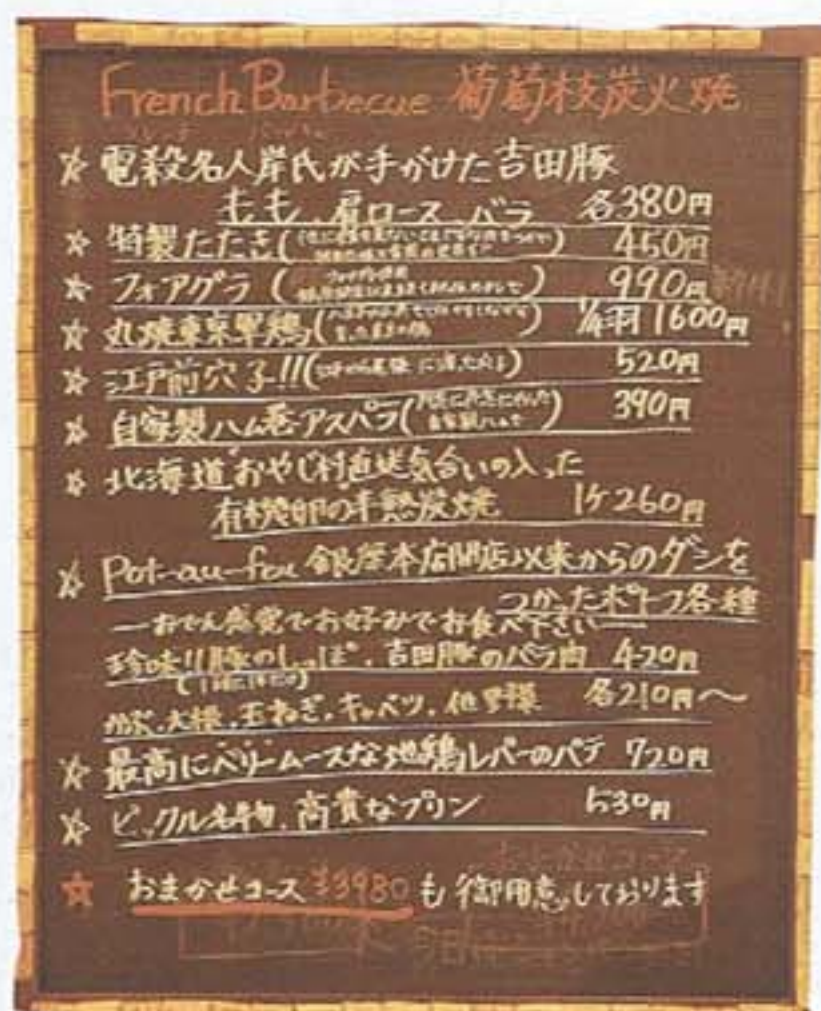 French Barbecue 葡萄枝炭火焼
☆ 電殺名人岸氏が手がけた吉田豚
もも、肩ロース、バラ 各380円
☆ 特製たたき 450円
☆ フォアグラ 990円
☆ 丸焼東京軍鶏 1/4羽 1600円
☆ 江戸前穴子!! 520円
☆ 自家製ハム巻アスパラ 390円
☆ 北海道おやじ村直送気合いの入った
有機卵の半熟炭焼 1ケ260円
☆ Pot-au-feu 銀座本店開店以来からのダシを
つかったポトフ各種
―おでん感覚でお好みでお食べ下さい―
珍味!!豚のしっぽ、吉田豚のバラ肉 420円
大根、玉ねぎ、キャベツ、他 各210円〜
☆ 最高にベリームースな地鶏レバーのパテ 720円
☆ ビックル名物、高貴なプリン 530円
☆ おまかせコース ¥3980 も御用意しております